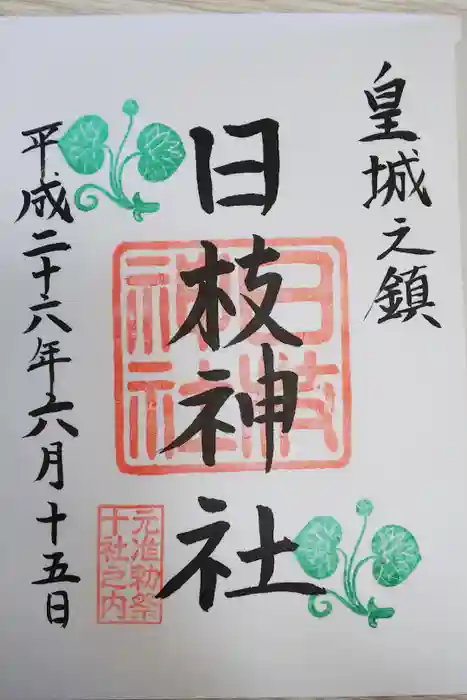 皇城之鎮
日枝神社
日枝神社
元准勅祭
十社之内
平成二十六年六月十五日